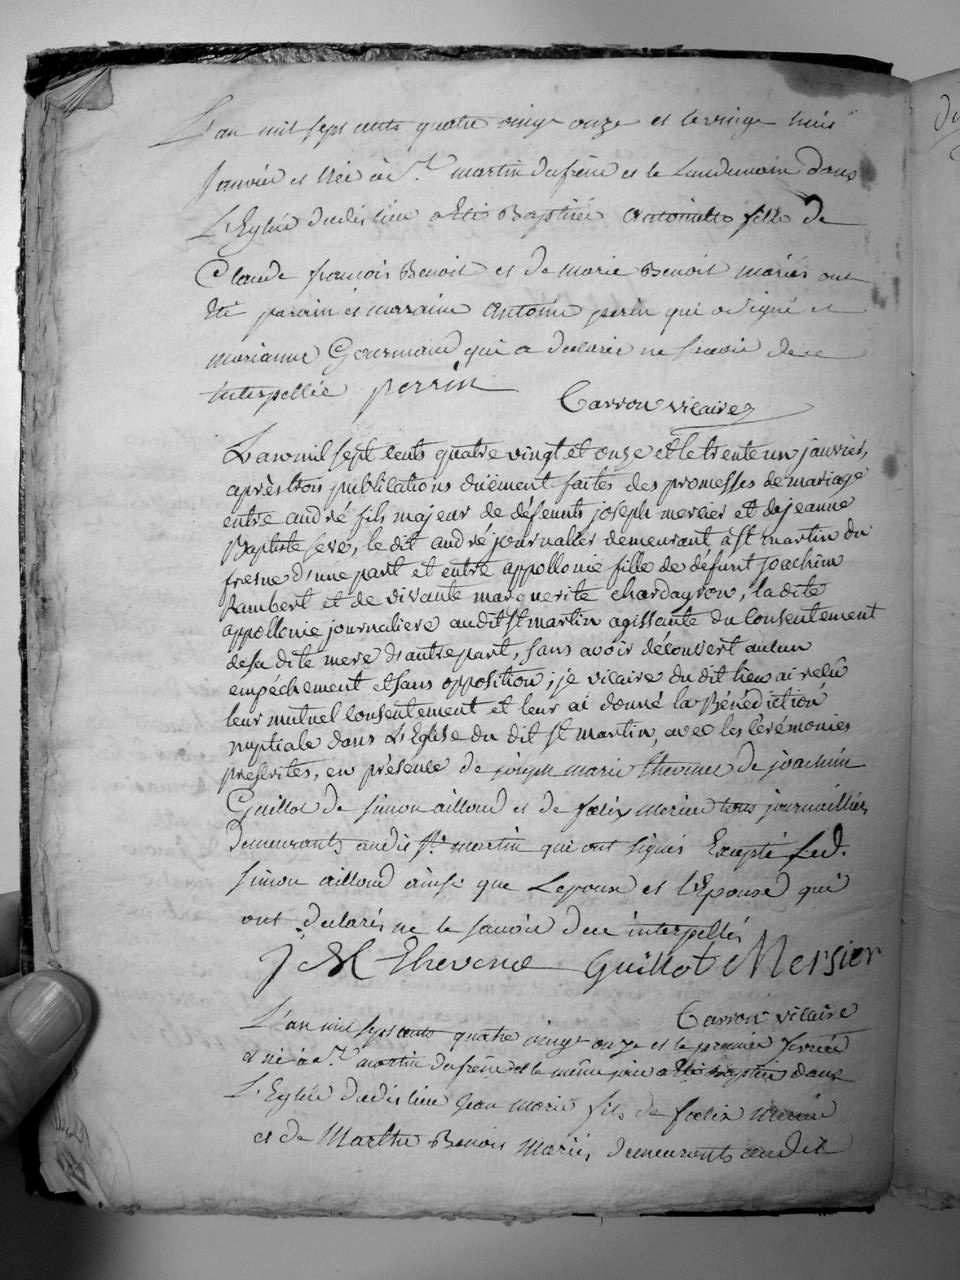 L'an mil sept cents quatre vingt onze et le vingt huit
Janvier est née à St martin dufrêne et le Lendemain dans
L'Eglise dudit lieu a Eté Baptisée Antoinette fille de
Claude françois Benoit et de marie Benoit mariés ont
été parain et marraine Antoine perin qui a signé et
marianne Gourmand qui a declaré ne savoir de ce
interpellée perrin
Carron vicaire
L'an mil sept cents quatre vingt et onze et le trente un janvier,
après trois publications dûement faites des promesses de mariage
entre andré fils majeur de défunts joseph mercier et de jeanne
Baptiste seve, le dit andré journalier demeurant à st martin du
fresne d'une part et entre appollonie fille de défunt joachim
Rambert et de vivante marguerite chardayron, la dite
appollonie journaliere au dit st martin agissante du consentement
de sa dite mere d'autre part, sans avoir découvert aucun
empéchement et sans opposition ; je vicaire du dit lieu ai reçû
leur mutuel consentement et leur ai donné la Bénédiction
nuptiale dans L'Eglise du dit st martin, avec les Cerémonies
prescrites, en présence de joseph marie thevenet de joachim
Guillot de simon ailloud et de foelix mercier tous journailliers
demeurants audit st martin qui ont signés Excepté led.
simon ailloud ainsi que L'epoux et l'Epouse qui
ont declarés ne le savoir de ce interpellés
J M thevene Guillot Mersier
Carron vicaire
L'an mil sept cents quatre vingt onze et le premier fevrier
est né à St martin dufrêne et le même jour a Eté Baptisé dans
L'Eglise dudit lieu jean marie fils de foelix mercier
et de Marthe Benoit mariés demeurants audit